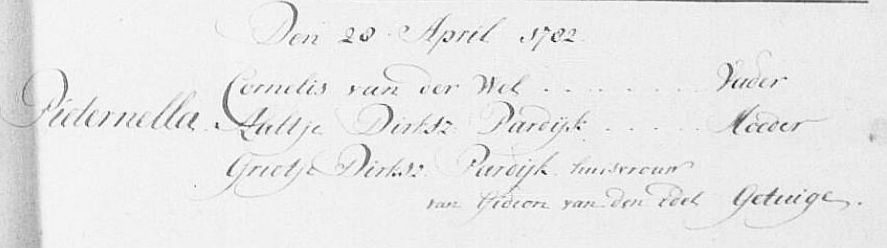 Den 28 April 1782
Cornelis van der Wel . . . . . . . Vader
Pieternella Aaltje Dirksz Pardijk . . . . . Moeder
Grietje Dirksz Pardijk huisvrouw
van Gideon van den Edel Getuige.